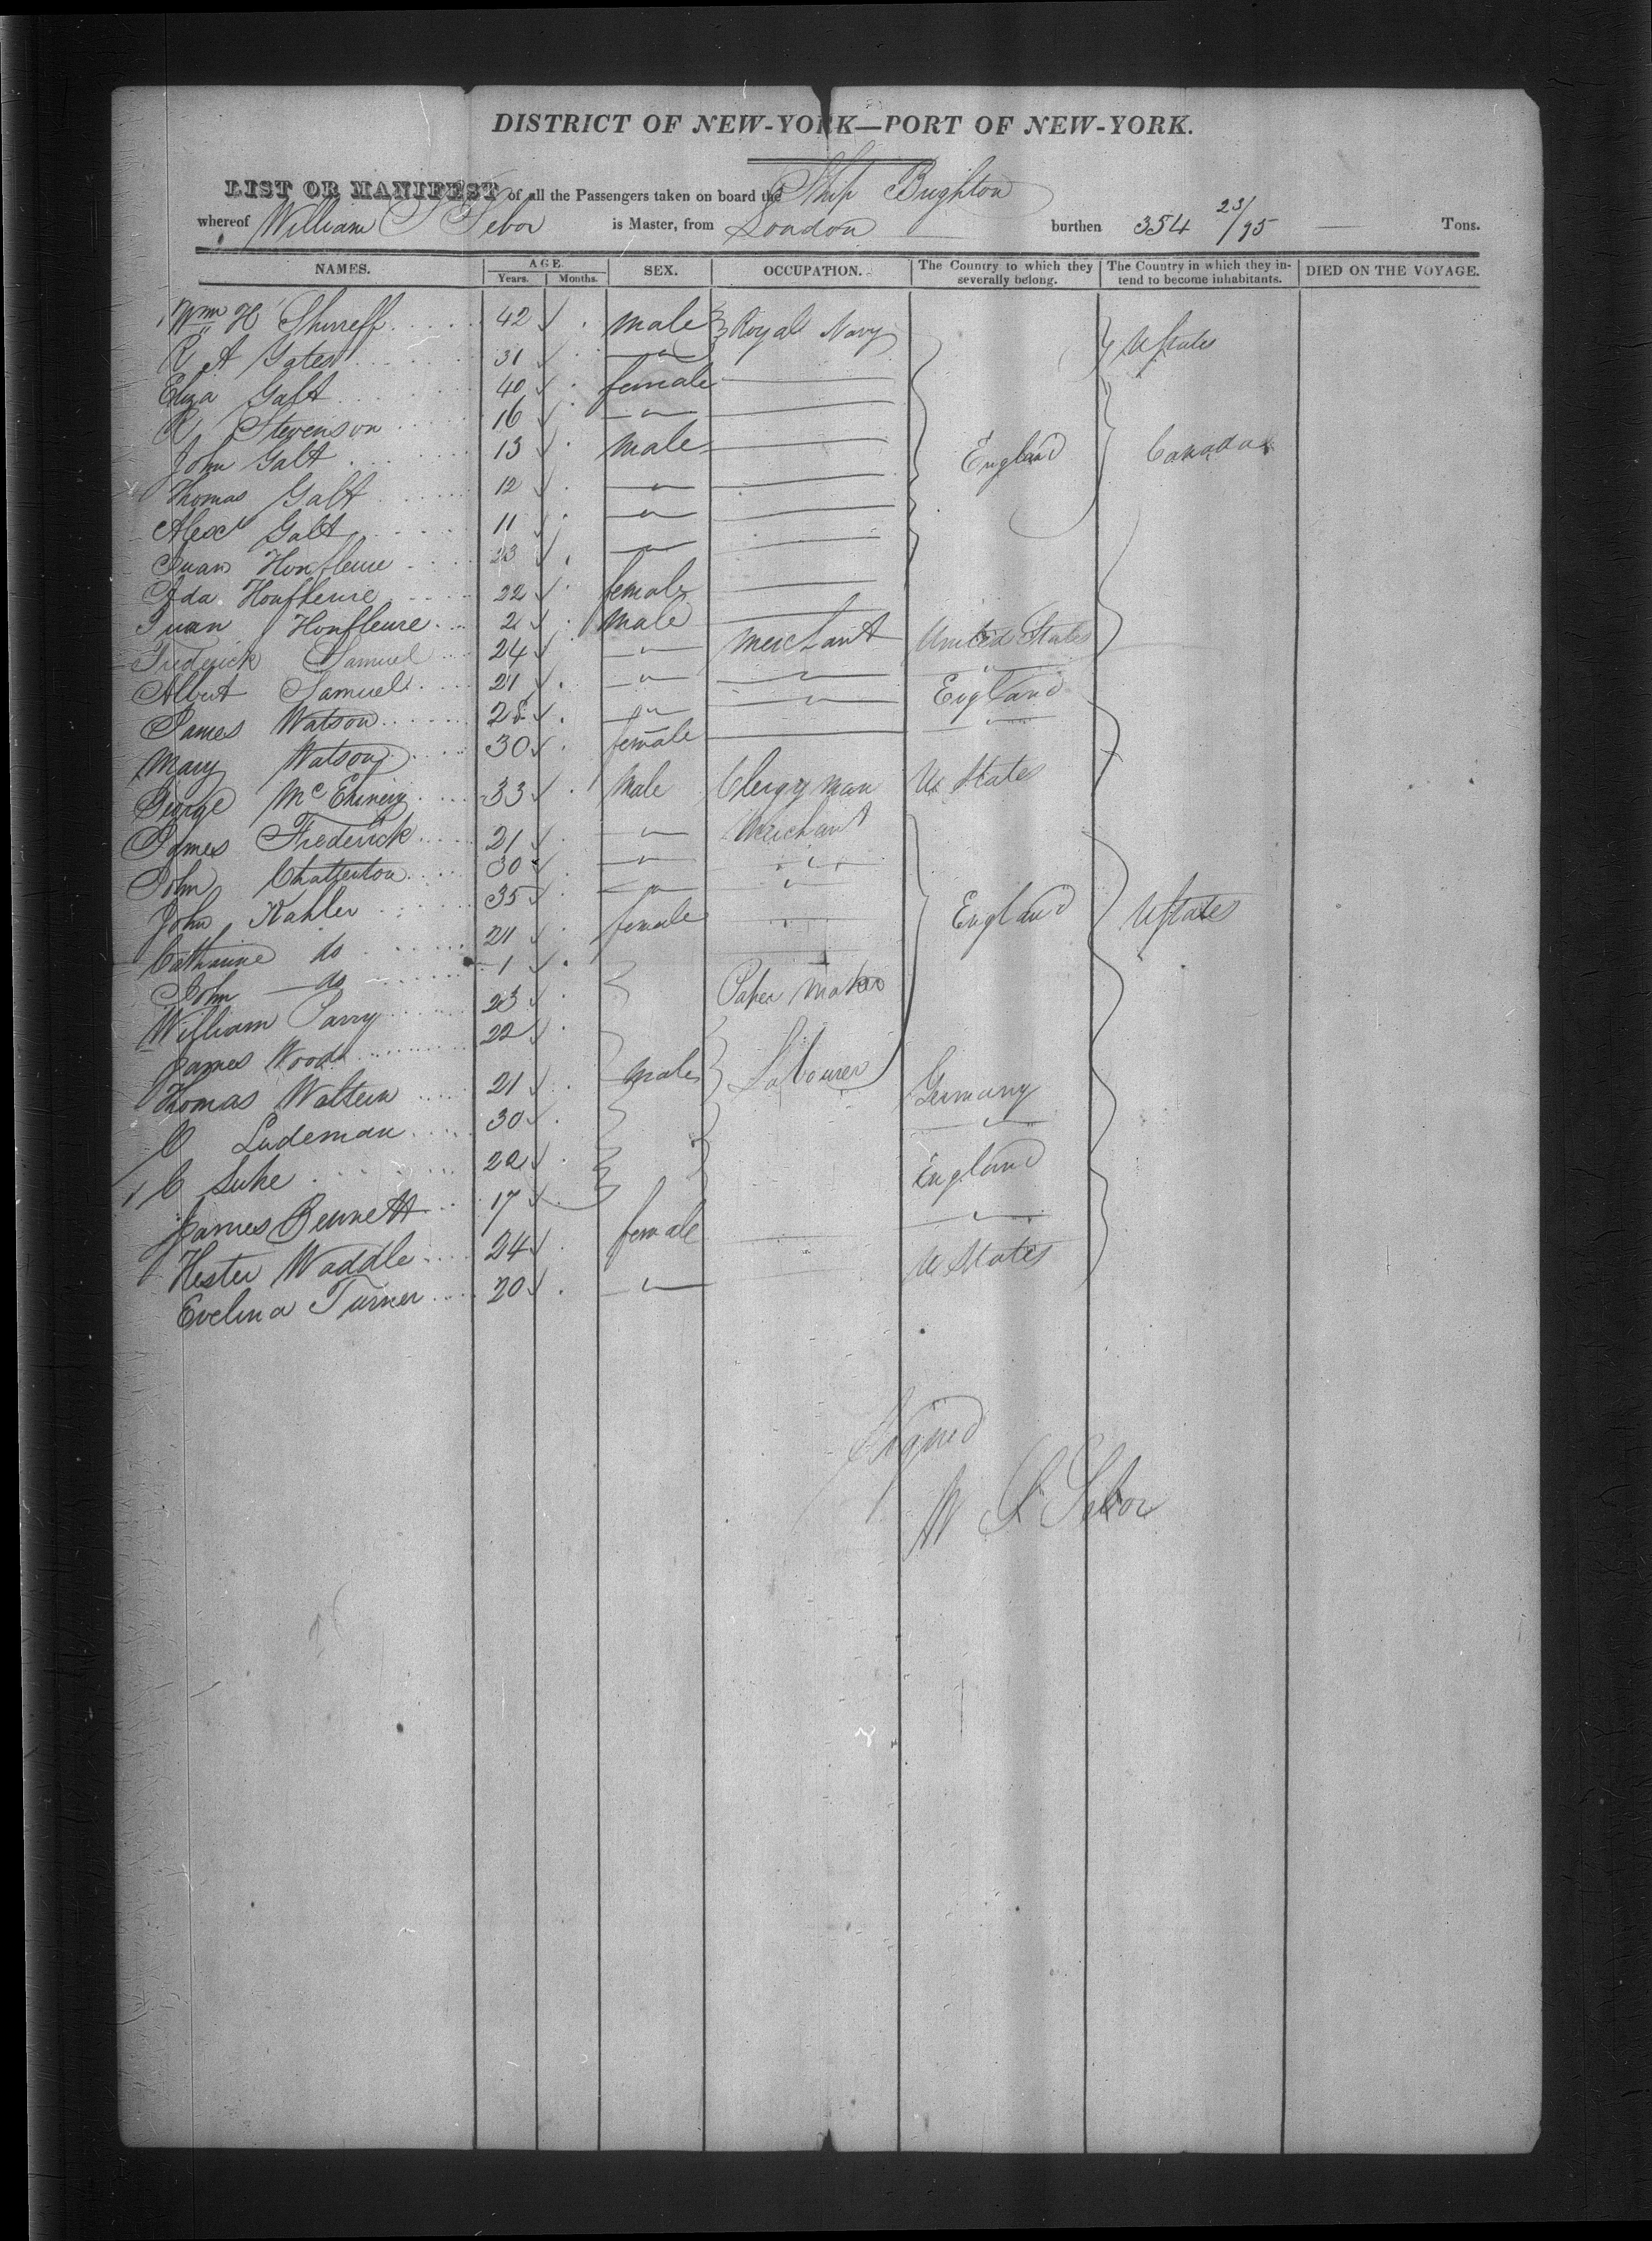 DISTRICT OF NEW-YORK—PORT OF NEW-YORK.
LIST OR MANIFEST of all the Passengers taken on board the Ship Brighton
whereof William S Sebor is Master, from London burthen 354 23/95 Tons.
NAMES. AGE. Years. Months. SEX. OCCUPATION. The Country to which they severally belong. The Country in which they intend to become inhabitants. DIED ON THE VOYAGE.
Wm H Shirreff 42 male Royal Navy U States
R A Yates 31 "
Eliza Galt 40 female
R Stevenson 16 "
John Galt 13 male England Canada
Thomas Galt 12 "
Alexr Galt 11 "
Juan Honfleure 23 "
Ada Honfleure 22 female
Juan Honfleure 2 male
Frederick Samuel 24 " Merchant United States
Albert Samuel 21 " " "
James Watson 28 " " England
Mary Watson 30 female "
George 33 male Clergyman U States
James Frederick 21 " Merchant
John Chatterton 30 " "
John Kahler 35 " "
Catharine do 21 female " England U States
John do 1
William Parry 23 Paper maker
James Wood 22
Thomas Waltern 21 male Labourer
C Ludeman 30 Germany
C Luhe 22 "
James Bennett 17 England
Hester Waddle 24 female "
Evelina Turner 20 " U States
Signed
W S Sebor